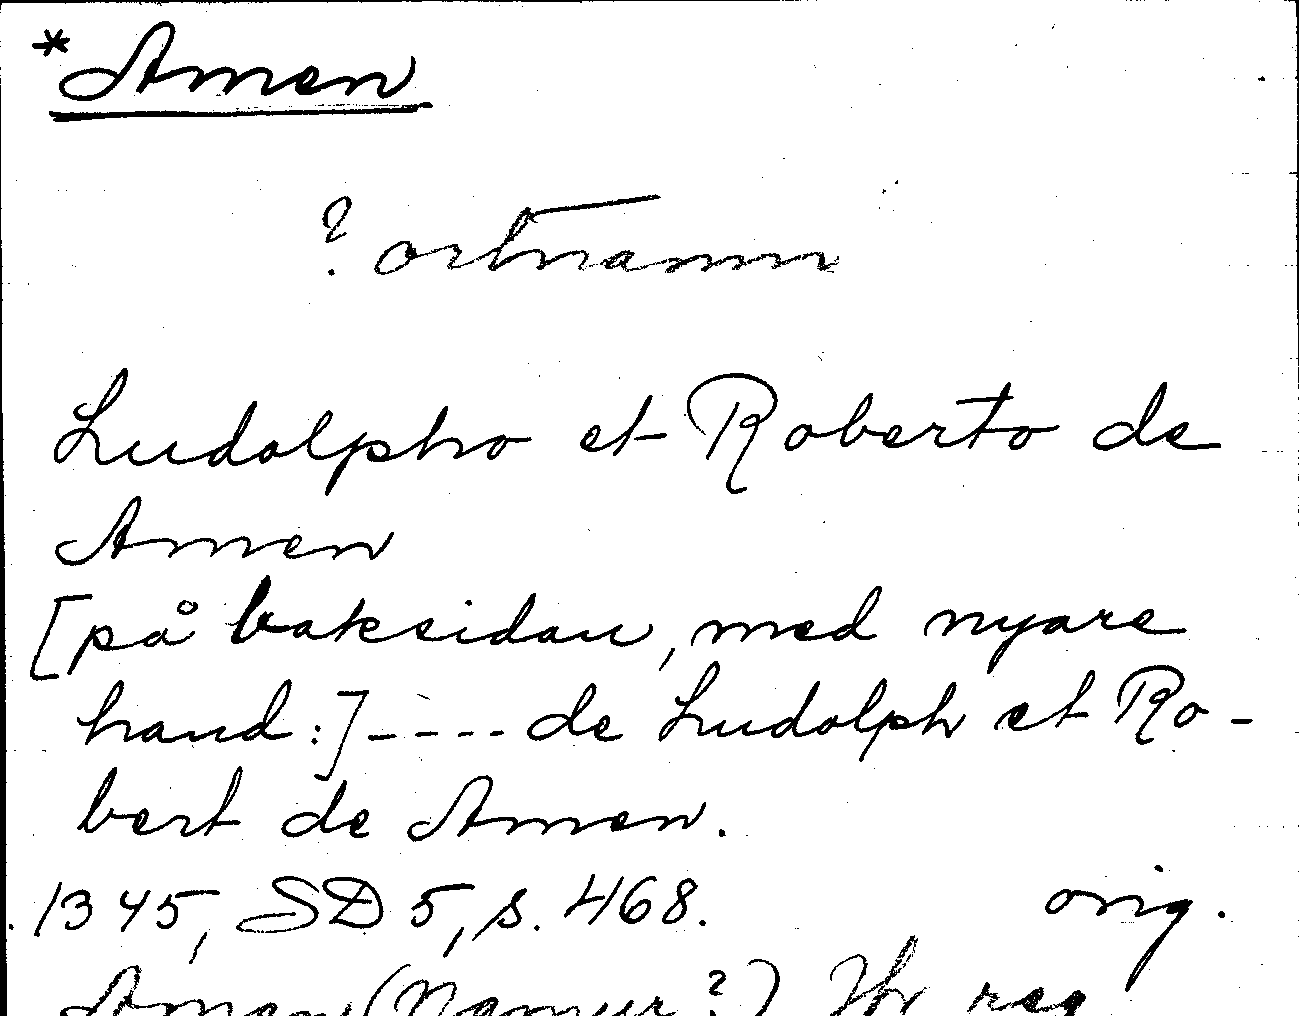 *Amen
? ortnamn
Ludolpho et Roberto de
Amen
[på baksidan, med nyare
hand:]----de Ludolph et Ro-
bert de Amen.
1345, SD 5, s. 468. orig.
Amen (Namur?) Hr reg